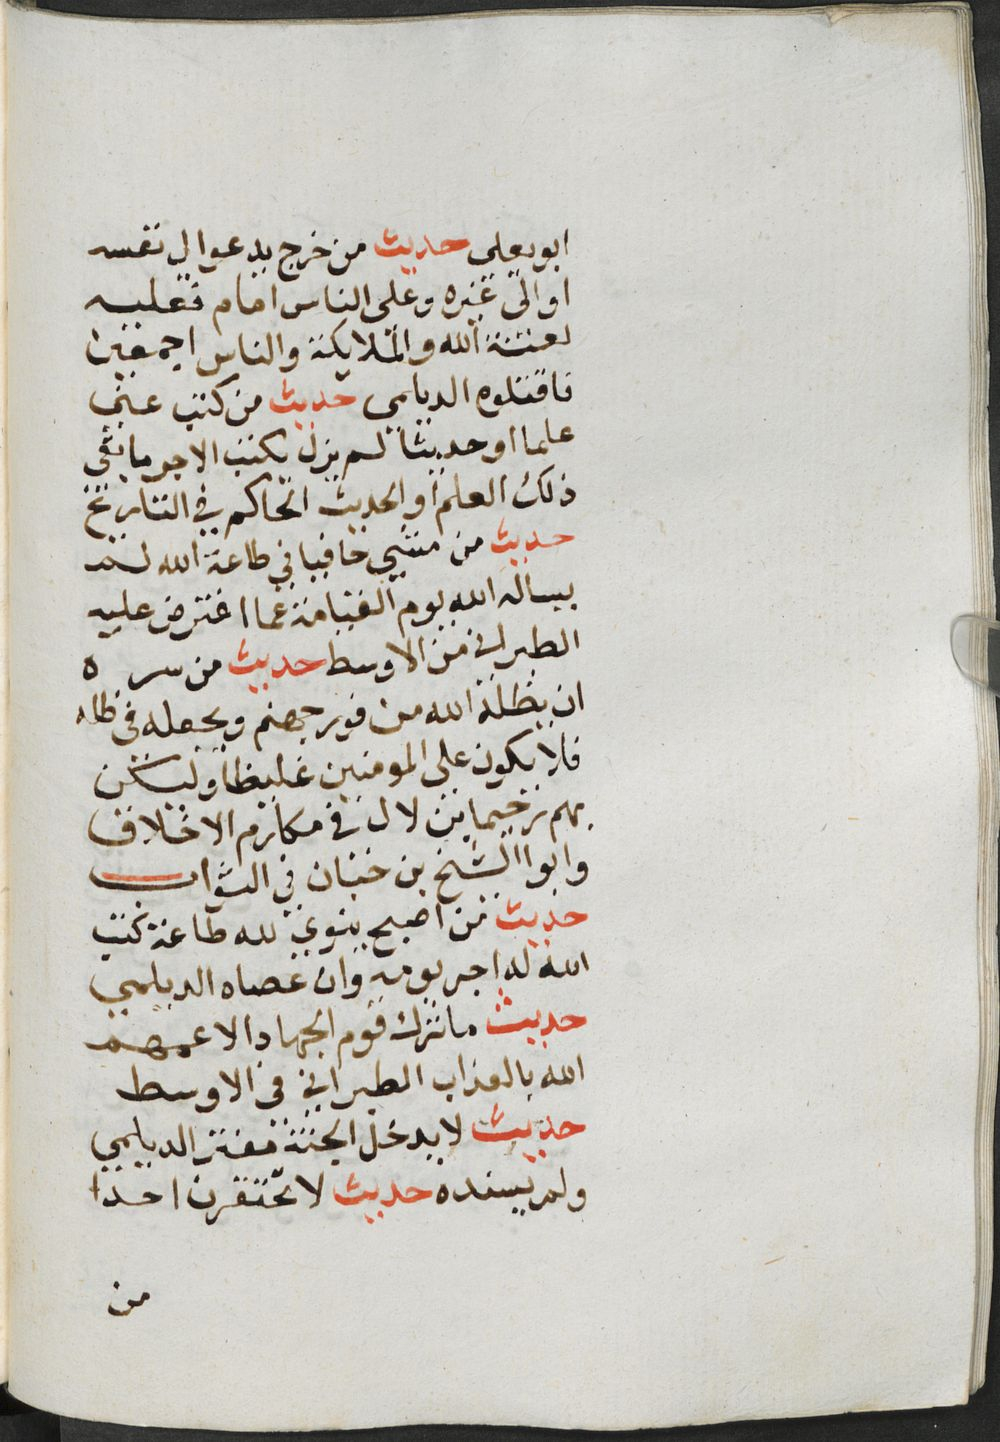 ابو يعلى حديث من خرج يدعوا لى نفسه
او الى غيره وعلى الناس امام فعليه
لعنة الله والملايكة والناس اجمعين
فاقتلوه الديلمي حديث من كتب عني
علما او حديثا لم يزل يكتب الاجر ما بقي
ذلك العلم او الحديث الحاكم في التاريخ
حديث من مشي حافيا في طاعة الله لم
يساله الله يوم القيامة عما افترض عليه
الطبراني في الاوسط حديث من سر ه
ان يظله الله من فور جهنم ويجعله في ظله
فلا يكون على المومنين غليظا وليكن
بهم رحيما بن لال في مكارم الاخلاق
وابوا الشيخ بن حبان في الثواب
حديث من اصبح ينوي لله طاعة كتب
الله له اجر يومه وان عصاه الديلمي
حديث ما ترك قوم الجهاد الا عمهم
الله بالعذاب الطبراني في الاوسط
حديث لا يدخل الجنة مفتر الديلمي
ولم يسنده حديث لا تحتقرن احدا
من